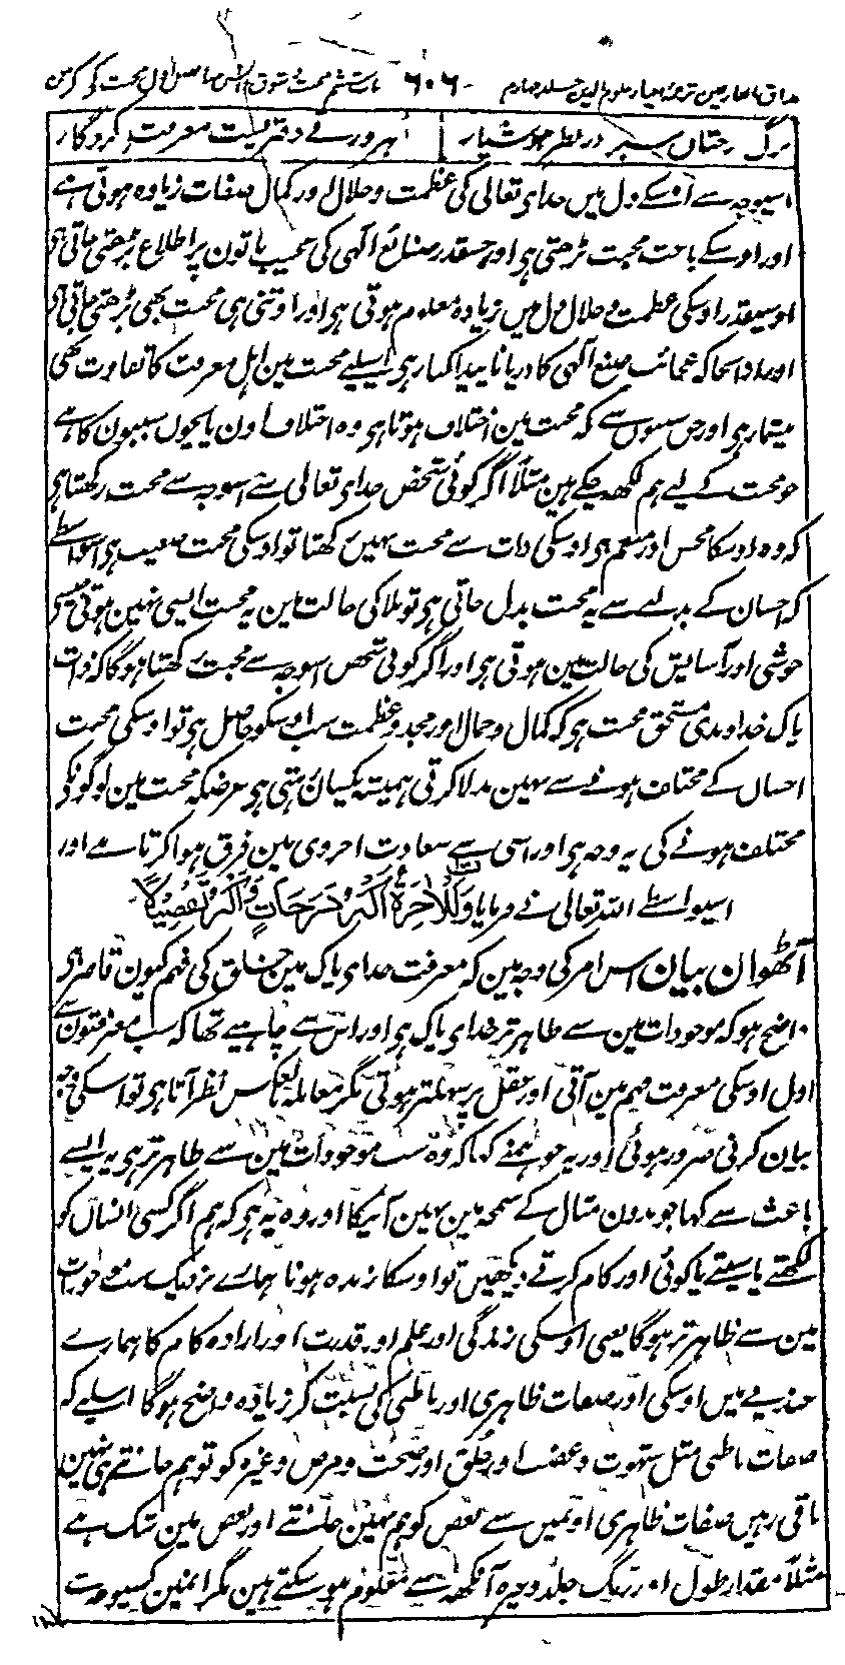 مذاق العارفین ترجمہ احیاء علوم الدین جلد چہارم ۶۰۶ باب ششم محبت و شوق
برگ درختان سبز در نظر ہوشیار ہر ورقے دفتریست معرفت کردگار
اسیوجہ سے اوسکے دل میں خدای تعالی کی عظمت و جلال اور کمال صفات زیادہ ہوتی ہے
اور اوسکے باعث محبت بڑھتی ہی اور جسقدر صنائع الٰہی کی عجیب باتون پر اطلاع بڑھتی جاتی ہی
اوسیقدر اوسکی عظمت و جلال دل میں زیادہ معلوم ہوتی ہی اور اوتنی ہی محبت بھی بڑھتی جاتی ہی
اور ازانجا کہ عجائب صنع الٰہی کا دریا ناپیدا کنار ہی اسلیے محبت مین اہل معرفت کا تفاوت بھی
بیشمار ہی اور جن سببوں سے کہ محبت مین اختلاف ہوتا ہی وہ اختلاف اون پانچوں سببون کا ہے
جو محبت کے لیے ہم لکھ چکے ہین مثلاً اگر کوئی شخص خدای تعالی سے اسوجہ سے محبت رکھتا ہی
کہ وہ اوسکا محسن اور منعم ہی اوسکی ذات سے محبت نہیں رکھتا تو اوسکی محبت ضعیف ہی اسواسطے
کہ احسان کے بدلنے سے یہ محبت بدل جاتی ہی تو بلا کی حالت مین یہ محبت ایسی نہین ہوتی جیسی
خوشی اور آسایش کی حالت مین ہوتی ہی اور اگر کوئی شخص اسوجہ سے محبت رکھتا ہوگا کہ ذات
پاک خداوندی مستحق محبت ہی کہ کمال و جمال اور مجد و عظمت سب اوسکو حاصل ہی تو اوسکی محبت
احسان کے مختلف ہونے سے نہین بدلا کرتی ہمیشہ یکسان رہتی ہی غرضکہ محبت مین لوگونکے
مختلف ہونے کی یہ وجہ ہی اور اسی سے سعادت اخروی مین فرق ہوا کرتا ہے اور
اسیواسطے اللہ تعالی نے فرمایا وَلَلْآخِرَةُ أَكْبَرُ دَرَجَاتٍ وَأَكْبَرُ تَفْضِيلًا
آٹھوان بیان اس امر کی وجہ مین کہ معرفت خدای پاک مین خلق کی فہم کیون قاصر ہی
واضح ہو کہ موجودات مین سے ظاہر تر خدای پاک ہی اور اس سے چاہیے تھا کہ سب معرفتون سے
اول اوسکی معرفت فہم مین آتی اور عقل پر سہلتر ہوتی مگر معاملہ بالعکس نظر آتا ہی تو اسکی وجہ
بیان کرنی ضرور ہوئی اور یہ جو ہمنے کہا کہ وہ سب موجودات مین سے ظاہر تر ہی یہ ایسے
باعث سے کہا جو بدون مثال کے سمجھ مین نہین آئیگا اور وہ یہ ہی کہ ہم اگر کسی انسان کو
لکھتے یا سیتے یا کوئی اور کام کرتے دیکھیں تو اوسکا زندہ ہونا ہمارے نزدیک سب موجودات
مین سے ظاہر تر ہوگا یعنی اوسکی زندگی اور علم اور قدرت اور ارادہ کام کا ہمارے
عندیے میں اوسکی اور صفات ظاہری اور باطنی کی نسبت کر زیادہ واضح ہوگا اسلیے کہ
صفات باطنی مثل شہوت و غضب اور خلق اور صحت و مرض وغیرہ کو تو ہم جانتے ہی نہین
باقی رہیں صفات ظاہری اونمیں سے بعض کو ہم نہین جانتے اور بعض مین شک ہے
مثلاً مقدار طول اور رنگ جلد وغیرہ آنکھ سے معلوم ہو سکتے ہین مگر